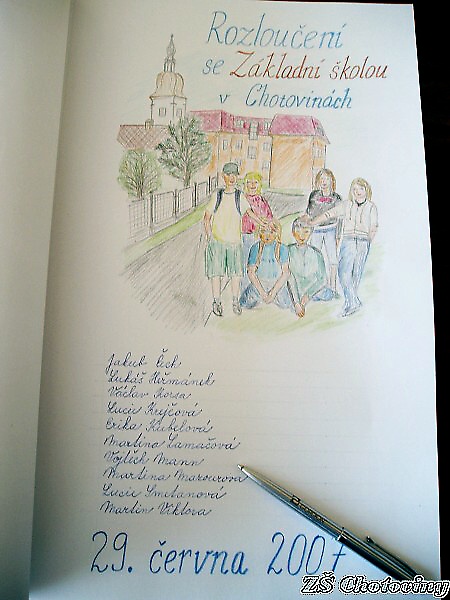 Rozloučení
se Základní školou
v Chotovinách
Jakub Čech
Lukáš Heřmánek
Václav Korsa
Lucie Krejčová
Erika Kubelová
Martina Lamačová
Vojtěch Mann
Martina Marourová
Lucie Smetanová
Martin Viktora
29. června 2007
ZŠ Chotoviny